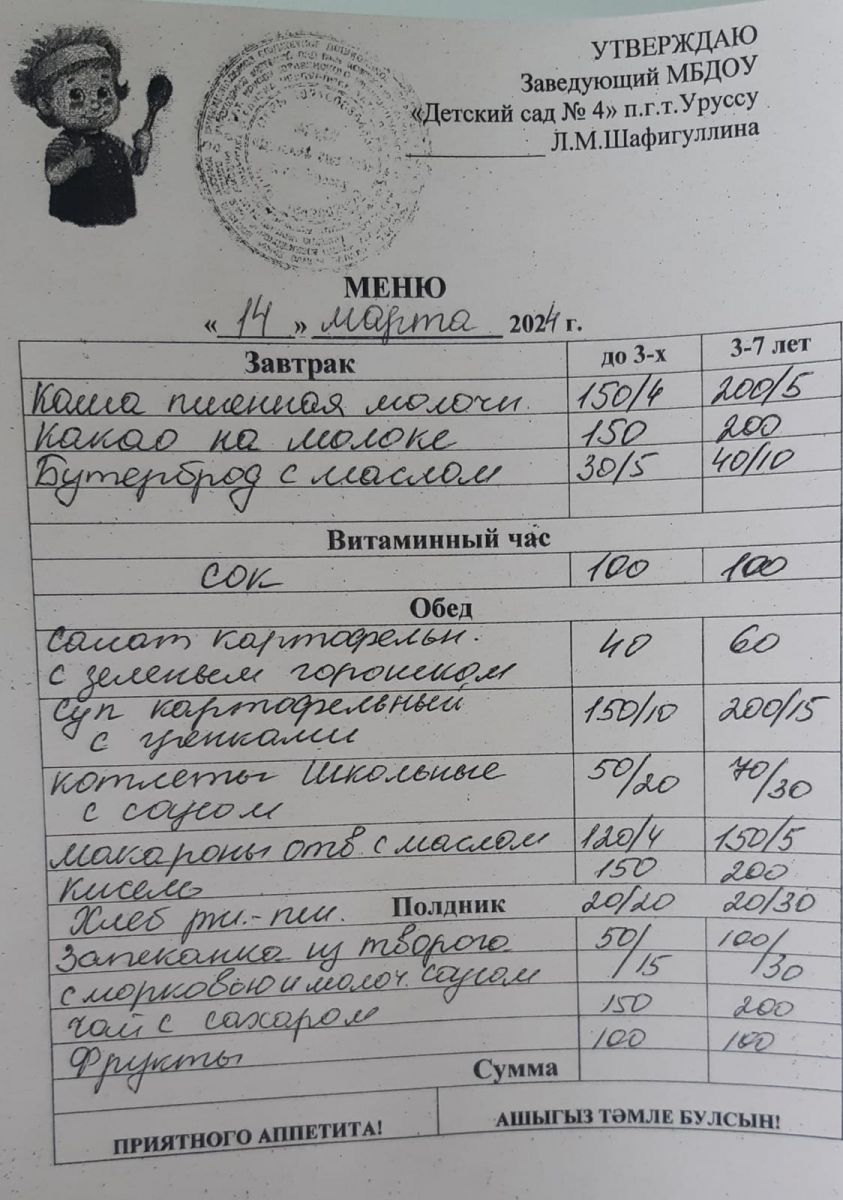 УТВЕРЖДАЮ
Заведующий МБДОУ
«Детский сад № 4» п.г.т.Уруссу
Л.М.Шафигуллина
МЕНЮ
« 14 » марта 2024 г.
Завтрак до 3-х 3-7 лет
Каша пшенная молочн. 150/4 200/5
Какао на молоке 150 200
Бутерброд с маслом 30/5 40/10
Витаминный час
сок 100 100
Обед
Салат картофельн. 40 60
с зеленым горошком
Суп картофельный 150/10 200/15
с гренками
котлеты Школьные 50/20 70/30
с соусом
макароны отв. с маслом 120/4 150/5
кисель 150 200
Хлеб рж.-пш. Полдник 20/20 20/30
Запеканка из творога 50/ 100/
с морковью и молоч. соусом /15 /30
чай с сахаром 150 200
Фрукты 100 100
Сумма
ПРИЯТНОГО АППЕТИТА! АШЫГЫЗ ТӘМЛЕ БУЛСЫН!